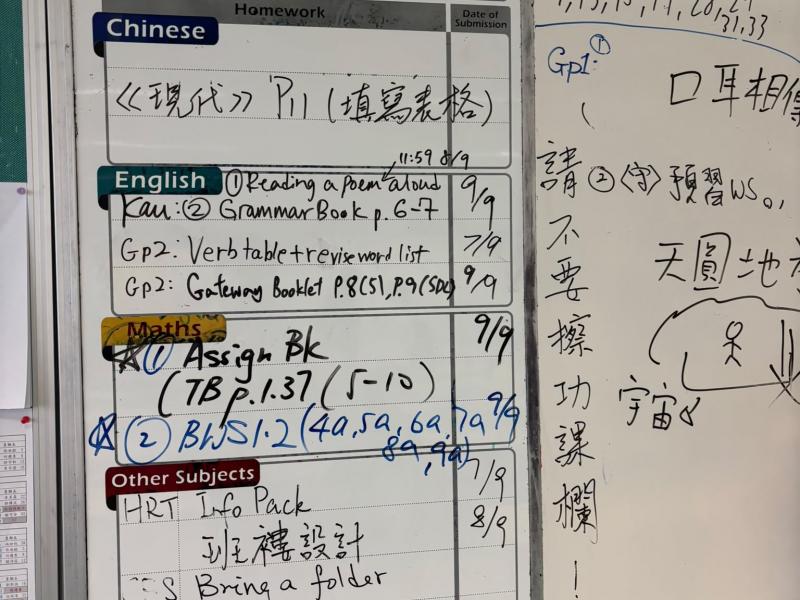 Homework
Date of Submission
Chinese
《現代》 P11 (填寫表格)
11:59 8/9
English ① Reading a poem aloud 9/9
Kau: ② Grammar Book p. 6-7
Gp2: Verb table + revise word list 7/9
Gp2: Gateway Booklet P.8(5), P.9(5DE) 9/9
Maths 9/9
☆ ① Assign Bk
(TB p.1.37 (5-10)
☆ ② BWS1.2 (4a, 5a, 6a, 7a 9/9
8a, 9a)
Other Subjects 7/9
HRT Info Pack
班褸設計 8/9
S Bring a folder
31,33
Gp1: ①
口耳相傳
② <守> 預習WS
天圓地
宇宙
請不要擦功課欄!